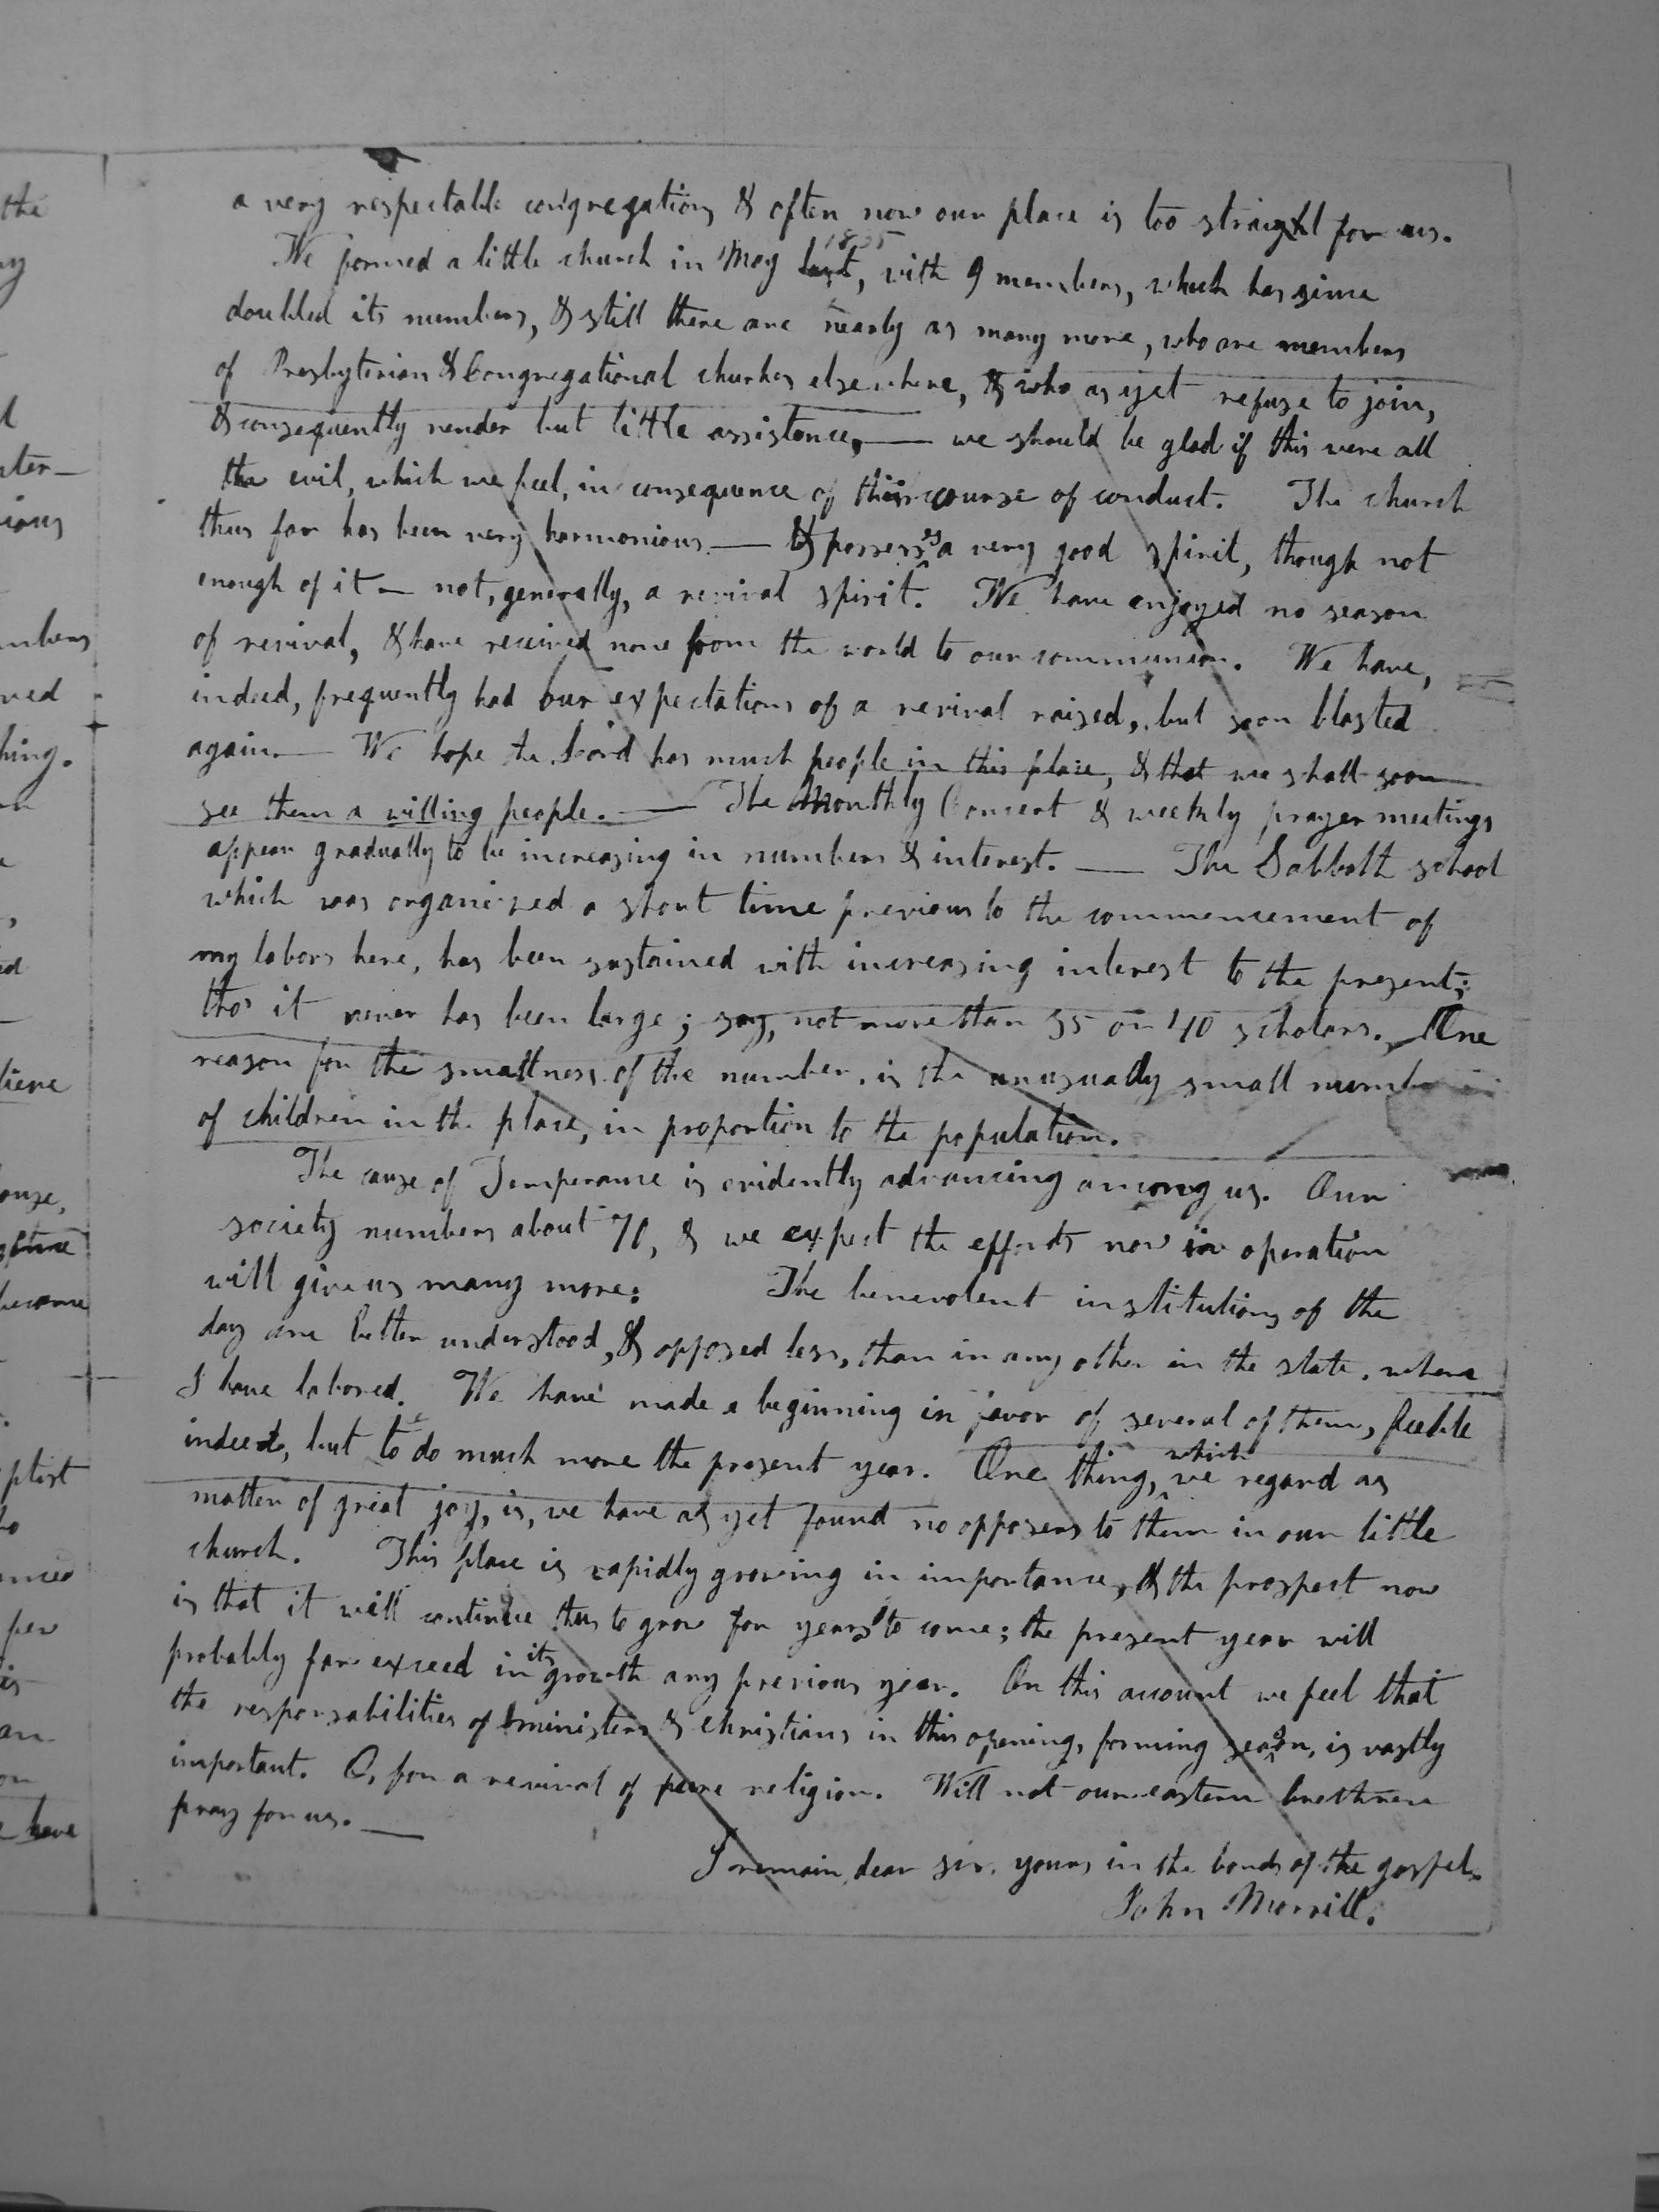 a very respectable congregation, & often now our place is too straight for us.
We formed a little church in May last, 1835 with 9 members, which has since
doubled its numbers, & still there are nearly as many more, who are members
of Presbyterian & Congregational churches elsewhere, & who as yet refuse to join,
& consequently render but little assistence, — we should be glad if this were all
the evil, which we feel, in consequence of their course of conduct. The church
thus far has been very harmonious — & possesses a very good spirit, though not
enough of it — not, generally, a revival spirit. We have enjoyed no season
of revival, & have received none from the world to our communion. We have,
indeed, frequently had our expectations of a revival raised, but soon blasted
again — We hope the Lord has much people in this place, & that we shall soon
see them a willing people. — The Monthly Concert & weekly prayer meetings
appear gradually to be increasing in numbers & interest. — The Sabbath school
which was organized a short time previous to the commencement of
my labors here, has been sustained with increasing interest to the present;
tho' it never has been large; say, not more than 35 or 40 scholars. One
reason for the smallness of the number, is the unusually small number
of children in the place, in proportion to the population.
The cause of Temperance is evidently advancing among us. Our
society numbers about 70, & we expect the efforts now in operation
will give us many more: The benevolent institutions of the
day are better understood, & opposed less, than in any other in the state, where
I have labored. We have made a beginning in favor of several of them, feeble
indeed, but to do much more the present year. One thing, which we regard as
matter of great joy, is, we have as yet found no opposers to them in our little
church. This place is rapidly growing in importance, & the prospect now
is that it will continue thus to grow for years to come; the present year will
probably far exceed in its growth any previous year. On this account we feel that
the responsabilities of ministers & christians in this opening, forming season, is vastly
important. O, for a revival of pure religion. Will not our eastern brethren
pray for us. —
I remain, dear sir, yours in the bonds of the gospel.
John Morrill.
the
members
hing.
ious
liene
ouse,
become
ptist
per
an
on
have